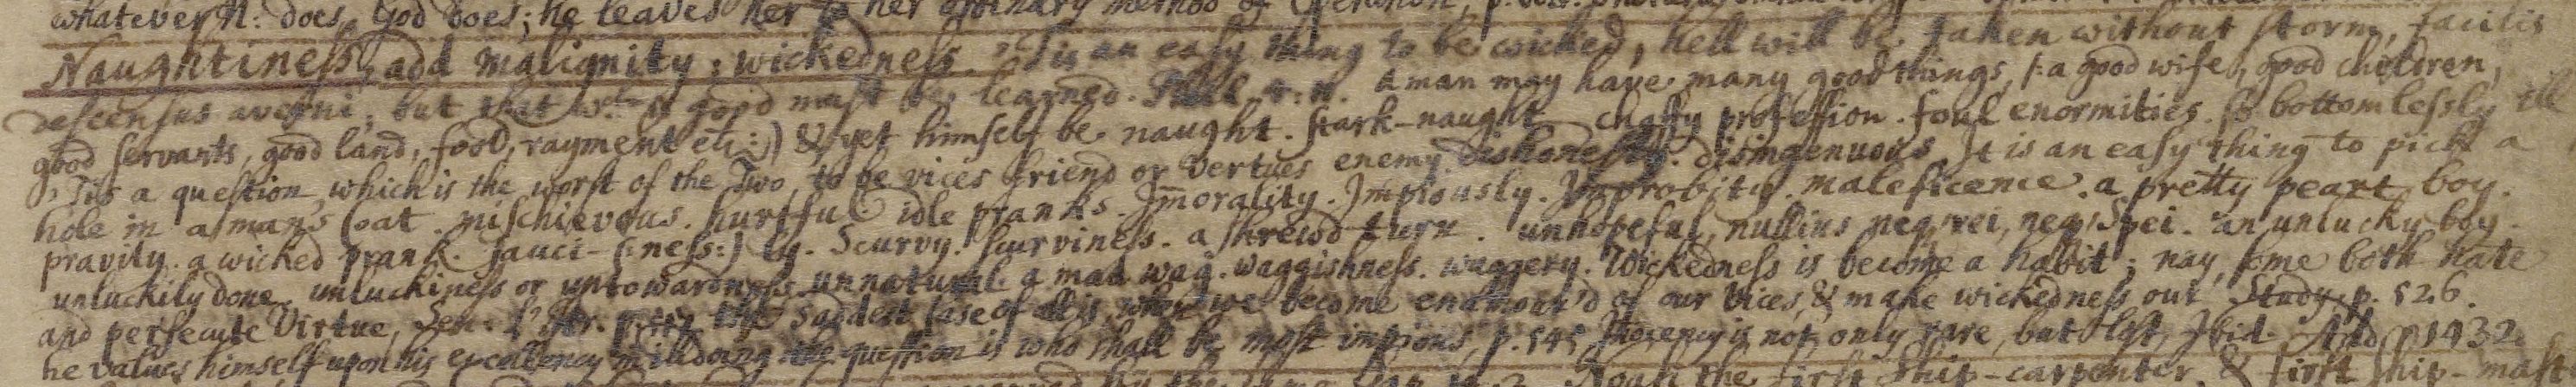 whatever N: does, God does; he leaves her to her ordinary method of
Naughtiness, add malignity; wickedness. 'Tis an easy thing to be wicked, hell will be taken without storm, facilis
descensus averni; but that wch is good must be learned. A man may have many good things, (: a good wife, good children,
good servants, good land, food, rayment etc:) & yet himself be naught. stark-naught. chaffy profession. foul enormities. so bottomlessly ill
'Tis a question which is the worst of the Two, to be vices friend or Vertues enemy. dishonesty. disingenuous It is an easy thing to pick a
hole in a mans Coat. mischievous. hurtful idle pranks. Im̄orality. Impiously. Improbity. maleficence. a pretty peart boy.
pravity. a wicked prank. Sauci-(:ness:) ly. Scurvy. scurviness. a shrewd turn. unhopeful, nullius neq rei, neq Spei. an unlucky boy.
unluckily done. unluckiness or untowardness. unnatural. a mad wag. waggishness. waggery. Wickedness is become a habit; nay, some both hate
and persecute Virtue, Sen: the saddest case of all is, when we become enamour'd of our Vices, & make wickedness our Study, p. 526.
he values himself upon his excellency in ill doing the question is who shall be most impious, p. 545 is not only rare, but lost, Ibid. Add p 1432
Noah the first ship-carpenter, & first ship-mast